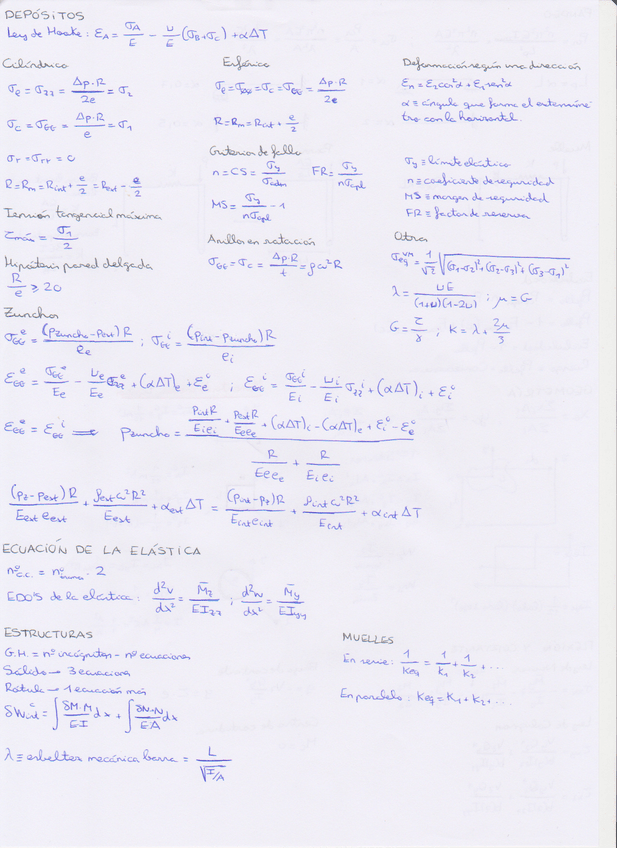 DEPÓSITOS
Ley de Hooke: ε_A = σ_A/E − υ/E (σ_B+σ_C) + αΔT
Cilíndrico
σ_e = σ_zz = Δp·R/2e = σ_2
σ_c = σ_θθ = Δp·R/e = σ_1
σ_r = σ_rr = 0
R = R_m = R_int + e/2 = R_ext − e/2
Tensión tangencial máxima
τ_máx = σ_1/2
Hipótesis pared delgada
R/e ≥ 20
Esférico
σ_e = σ_φφ = σ_c = σ_θθ = Δp·R/2e
R = R_m = R_int + e/2
Criterios de fallo
n = CS = σ_y/σ_adm FR = σ_y/nσ_apl
MS = σ_y/nσ_apl − 1
Anillos en rotación
σ_θθ = σ_c = Δp·R/t = ρω²R
Deformación según una dirección
ε_n = ε_2cos²α + ε_1sen²α
α ≡ ángulo que forma el extensóme
tro con la horizontal.
σ_y ≡ límite elástico
n ≡ coeficiente de seguridad
MS ≡ margen de seguridad
FR ≡ factor de reserva
Otros
σ_eq^VM = 1/√2 √((σ_1−σ_2)²+(σ_2−σ_3)²+(σ_3−σ_1)²
λ = υE/(1+υ)(1−2υ) ; μ = G
G = τ/γ ; K = λ + 2μ/3
Zunchos
σ_θθ^e = (p_zuncho − p_ext)R/e_e ; σ_θθ^i = (p_int − p_zuncho)R/e_i
ε_θθ^e = σ_θθ^e/E_e − υ_e/E_e σ_zz^e + (αΔT)_e + ε_e^o ; ε_θθ^i = σ_θθ^i/E_i − υ_i/E_i σ_zz^i + (αΔT)_i + ε_i^o
ε_θθ^e = ε_θθ^i ⟹ p_zuncho = (p_int R/E_i e_i + p_ext R/E_e e_e + (αΔT)_i − (αΔT)_e + ε_i^o − ε_e^o)/(R/E_e e_e + R/E_i e_i)
(p_z − p_ext)R/E_ext e_ext + ρ_ext ω²R²/E_ext + α_ext ΔT = (p_int − p_z)R/E_int e_int + ρ_int ω²R²/E_int + α_int ΔT
ECUACIÓN DE LA ELÁSTICA
nº c.c. = nº tramos · 2
EDO'S de la elástica: d²v/dx² = M̄_z/EI_zz ; d²w/dx² = M̄_y/EI_yy
ESTRUCTURAS
G.H. = nº incógnitas − nº ecuaciones
Sólido → 3 ecuaciones
Rótula → 1 ecuación más
δW_int^c = ∫ δM·M/EI dx + ∫ δN·N/EA dx
λ ≡ esbeltez mecánica barra = L/√(I/A)
MUELLES
En serie: 1/K_eq = 1/K_1 + 1/K_2 + ...
En paralelo: K_eq = K_1 + K_2 + ...